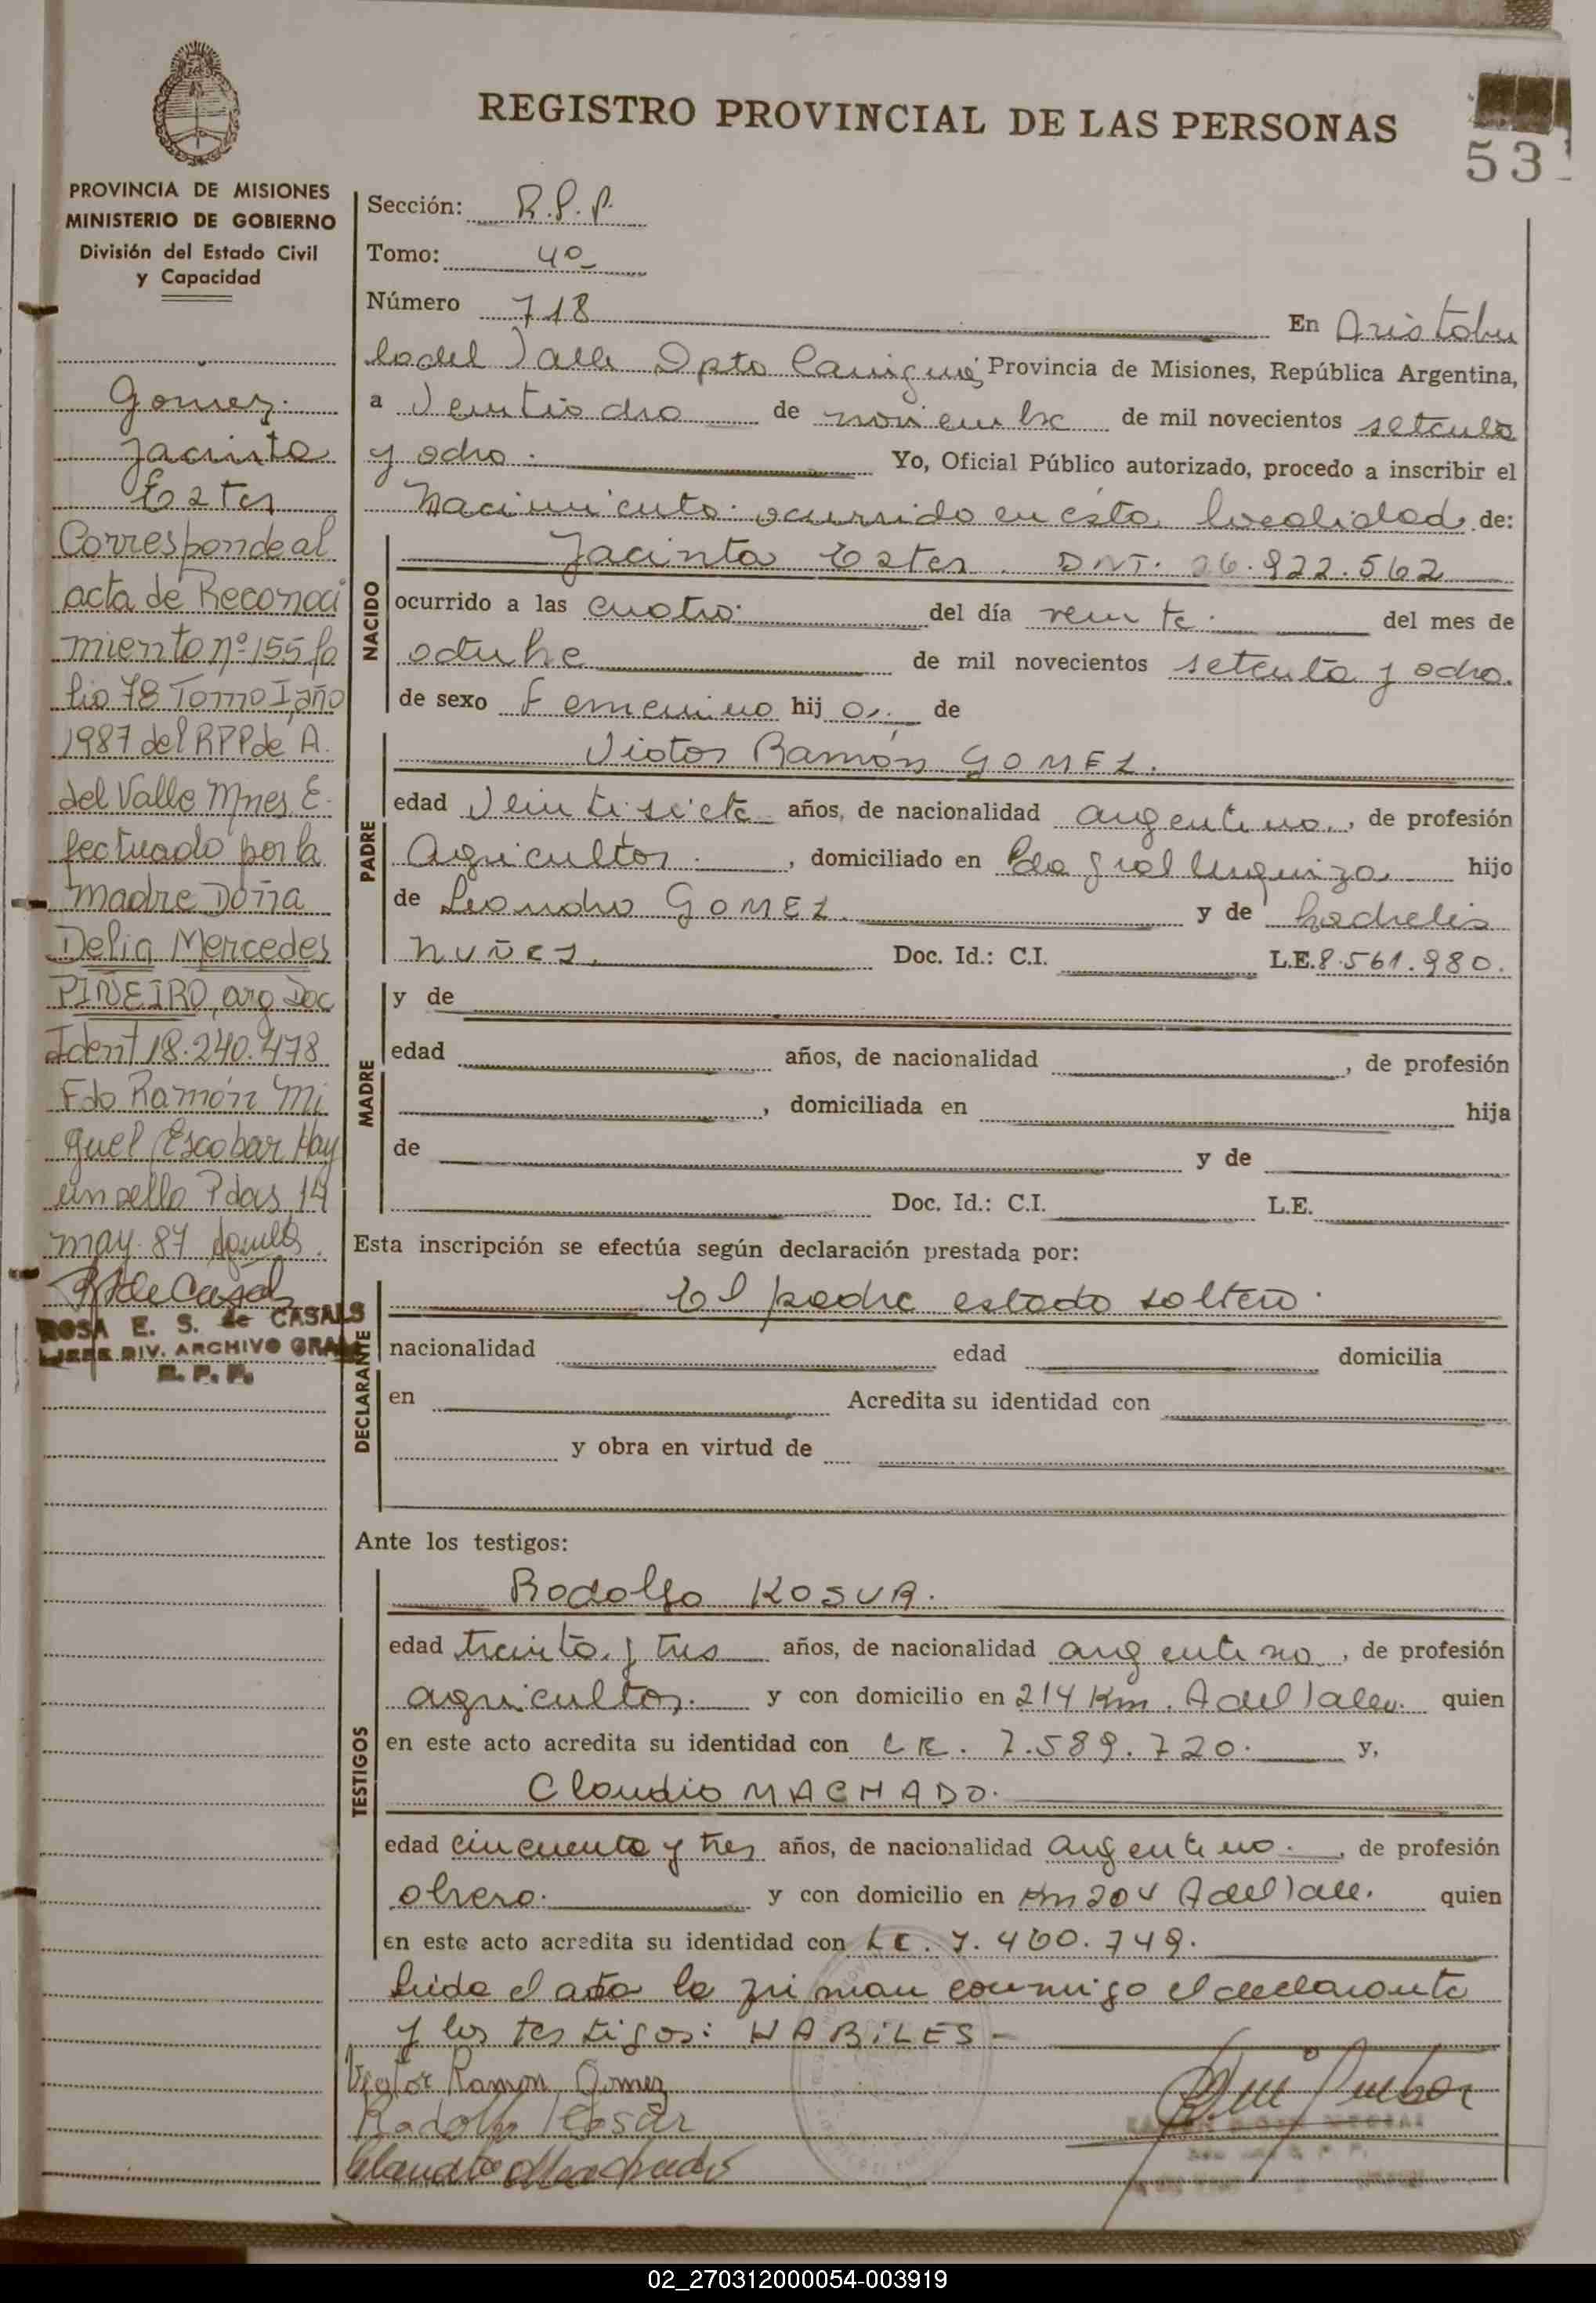 REGISTRO PROVINCIAL DE LAS PERSONAS
53
PROVINCIA DE MISIONES
MINISTERIO DE GOBIERNO
División del Estado Civil
y Capacidad
Gomez
Jacinta
Ester
Corresponde al
acta de Reconoci
miento nº 155 fo
lio 78 Tomo I, año
1987 del RPP de A.
del Valle Mnes. E-
fectuado por la
madre Doña
Delia Mercedes
PIÑEIRO, arg Doc
Ident 18.240.478
Fdo Ramón Mi
guel Escobar Hay
un sello Pdas, 14
may. 87
ROSA E. S. de CASALS
JEFE DIV. ARCHIVO GRAL
R. P. P.
Sección: R.P.P.
Tomo: 4º
Número 718 En Aristobu
lo del Valle Dpto Cainguás Provincia de Misiones, República Argentina,
a Veintiocho de noviembre de mil novecientos setenta
y ocho. Yo, Oficial Público autorizado, procedo a inscribir el
Nacimiento ocurrido en ésta localidad de:
NACIDO
Jacinta Ester. DNI. 26.922.562
ocurrido a las cuatro del día veinte del mes de
octubre de mil novecientos setenta y ocho.
de sexo Femenino hij a. de
PADRE
Victor Ramón GOMEZ.
edad Veintisiete años, de nacionalidad argentino, de profesión
Agricultor, domiciliado en Pdo Gral Urquiza hijo
de Leandro GOMEZ y de
NUÑEZ. Doc. Id.: C.I. L.E. 8.561.980.
MADRE
y de
edad años, de nacionalidad , de profesión
, domiciliada en hija
de y de
Doc. Id.: C.I. L.E.
Esta inscripción se efectúa según declaración prestada por:
DECLARANTE
El padre estado soltero.
nacionalidad edad domicilia
en Acredita su identidad con
y obra en virtud de
Ante los testigos:
TESTIGOS
Rodolfo KOSUR.
edad treinta y tres años, de nacionalidad argentino, de profesión
agricultor. y con domicilio en 214 Km. A del Valle. quien
en este acto acredita su identidad con LE. 7.589.720. y,
Claudio MACHADO.
edad cincuenta y tres años, de nacionalidad argentino. , de profesión
obrero. y con domicilio en Km 204 A del Valle. quien
en este acto acredita su identidad con LE. 7.460.749.
Leida el acta la firman conmigo el declarante
y los testigos: HABILES-
Victor Ramon Gomez
Rodolfo Kosur
Claudio Machado
02_270312000054-003919